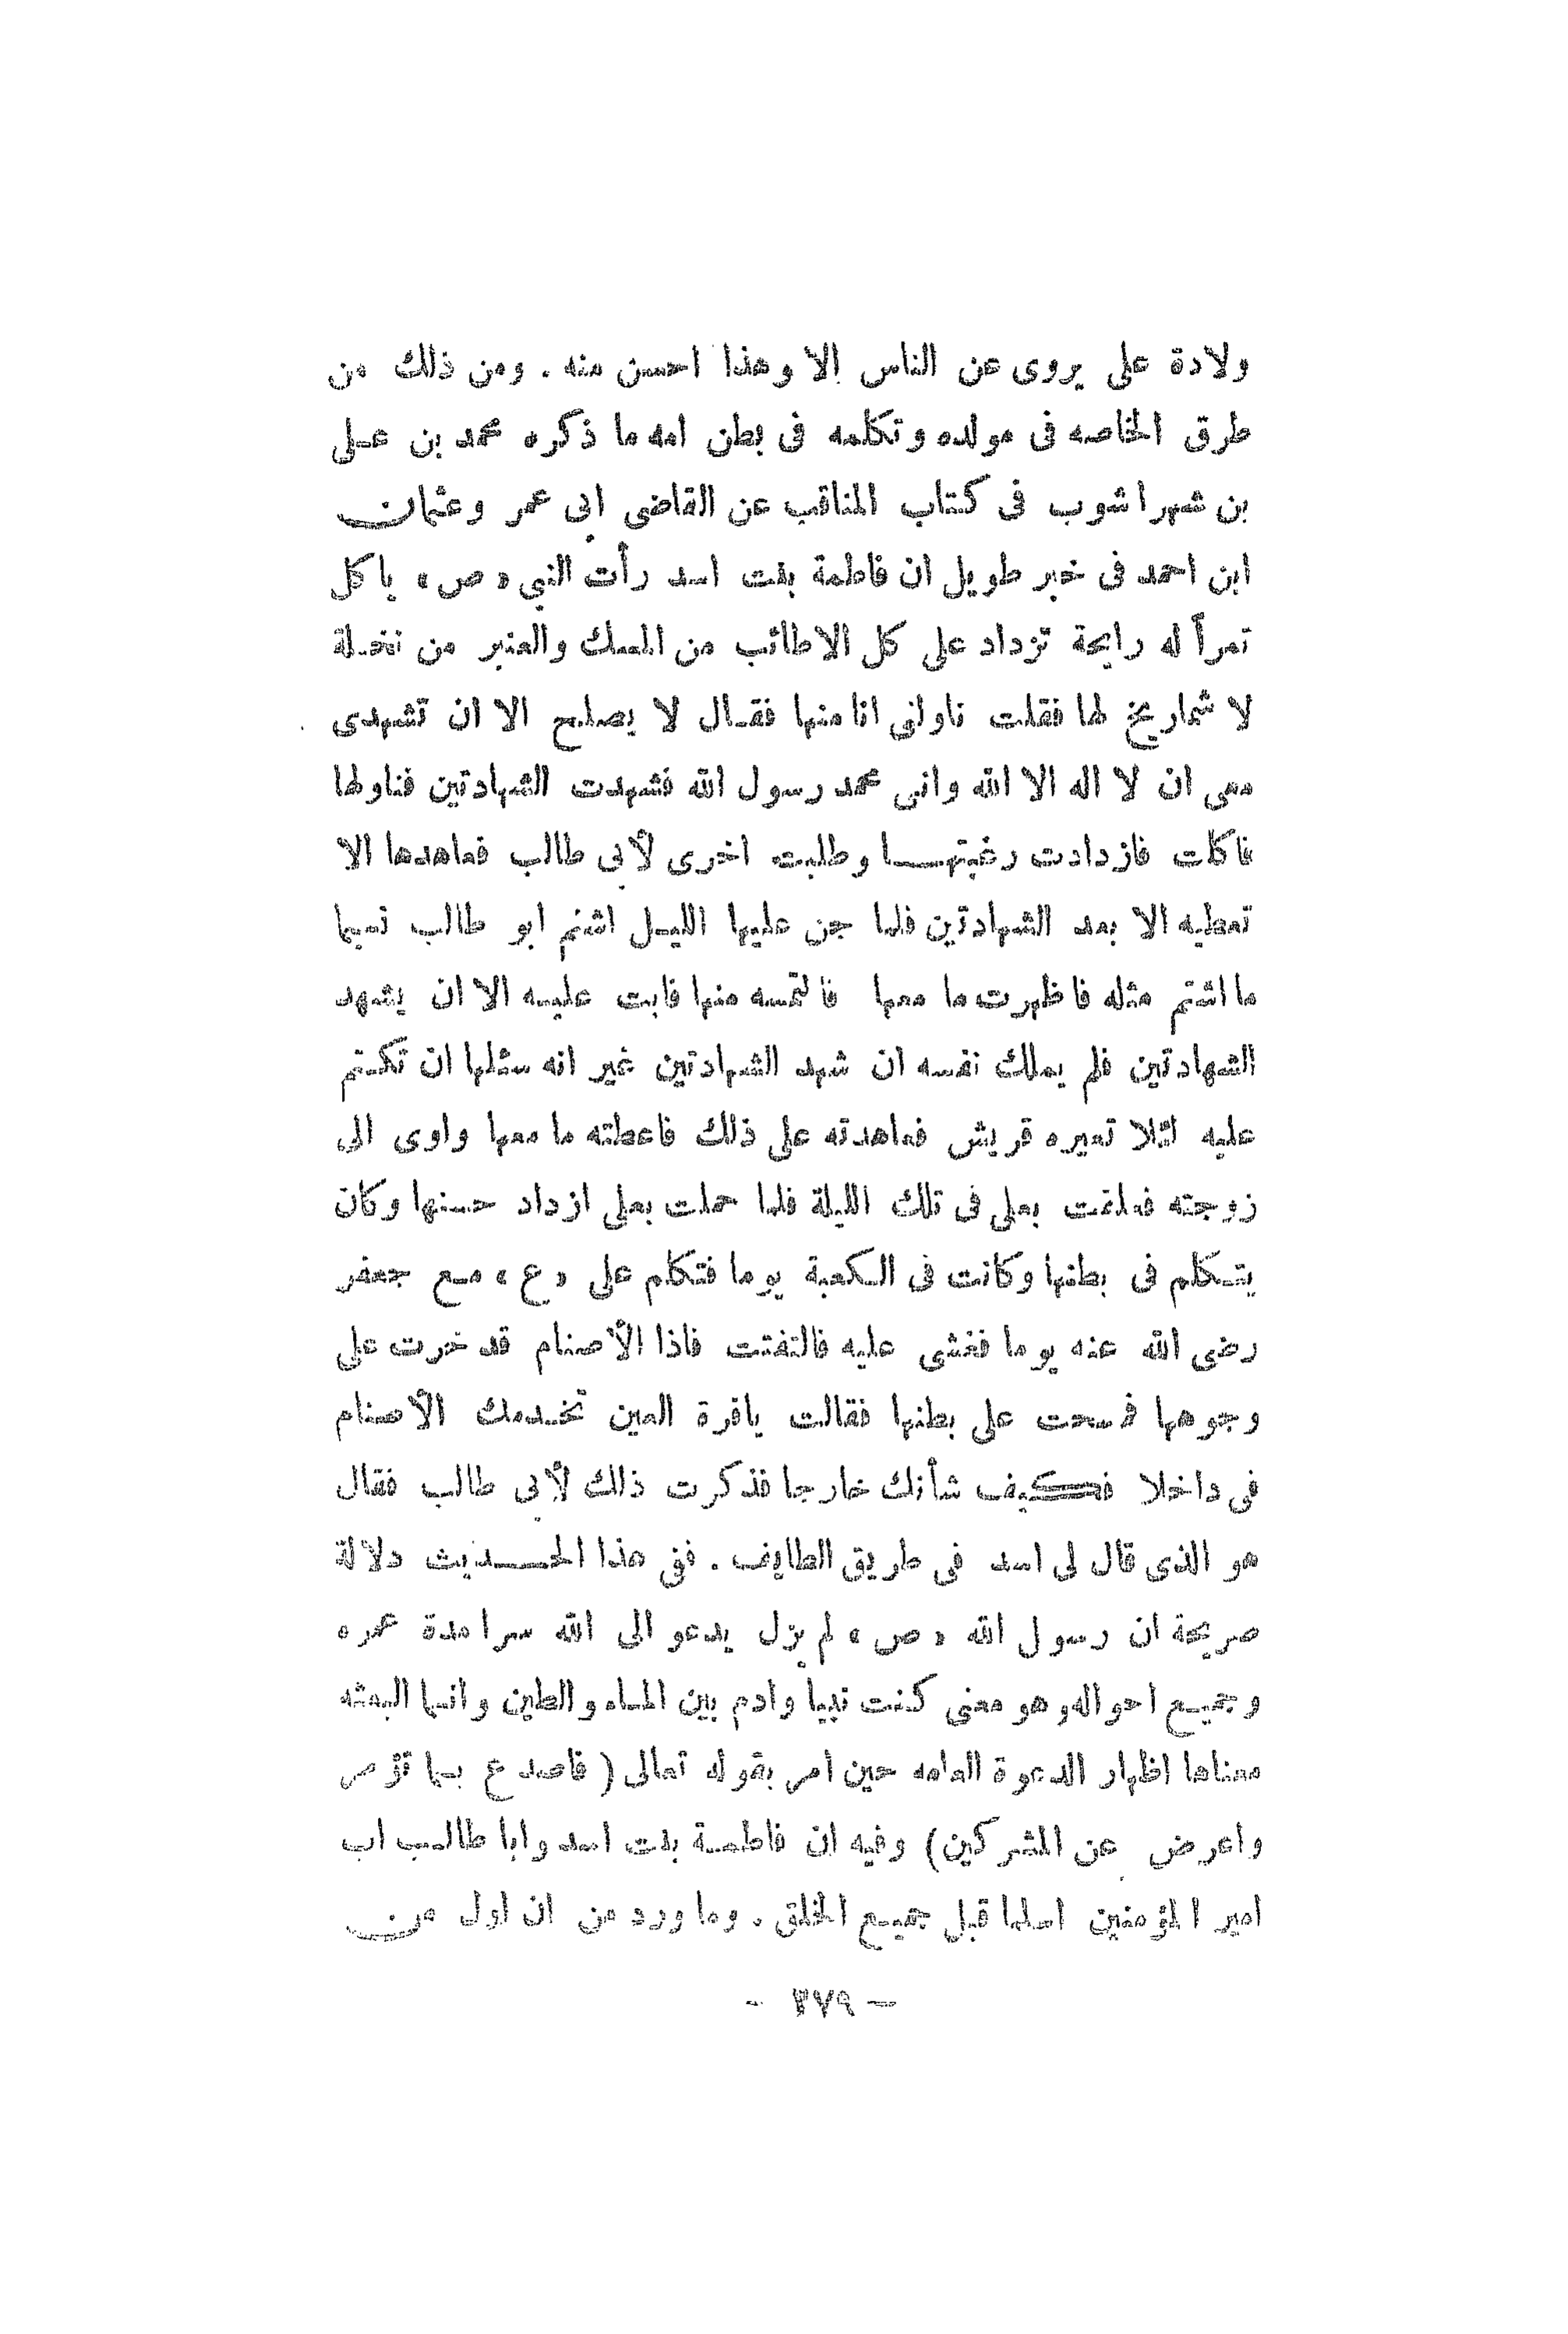 ولادة على يروى عن الناس إلا وهذا احسن منه . ومن ذلك من
طرق الخاصه فى مولده وتكلمه فى بطن امه ما ذكره محمد بن عـلى
بن شهراشوب فى كتاب المناقب عن القاضى ابى عمر وعثمان
ابن احمد فى خبر طويل ان فاطمة بنت اسد رأت النبي « ص » ياكل
تمرأ له رايحة تزداد على كل الاطائب من المسك والعنبر من نخلة
لا شماريخ لها فقلت ناولنى انا منها فقال لا يصلح الا ان تشهدى
معى ان لا اله الا الله وانى محمد رسول الله فشهدت الشهادتين فناولها
فاكلت فازدادت رغبتهـا وطلبت اخرى لأبى طالب فعاهدها الا
تعطيه الا بعد الشهادتين فلما جن عليها الليل اشتم ابو طالب نسيما
ما اشتم مثله فاظهرت ما معها فالتمسه منها فابت عليه الا ان يشهد
الشهادتين فلم يملك نفسه ان شهد الشهادتين غير انه سئلها ان تكتم
عليه لئلا تعيره قريش فعاهدته على ذلك فاعطته ما معها واوى الى
زوجته فعلقت بعلى فى تلك الليلة فلما حملت بعلى ازداد حسنها وكان
يتكلم فى بطنها وكانت فى الكعبة يوما فتكلم على « ع » مع جعفر
رضى الله عنه يوما فغشى عليه فالتفتت فاذا الأصنام قد خرت على
وجوهها فمسحت على بطنها فقالت ياقرة العين تخدمك الأصنام
فى داخلا فكيف شأنك خارجا فذكرت ذلك لأبى طالب فقال
هو الذى قال لى اسد فى طريق الطايف . ففى هذا الحـديث دلالة
صريحة ان رسول الله « ص » لم يزل يدعو الى الله سرا مدة عمره
وجميع احواله وهو معنى كنت نبيا وادم بين الماء والطين وانما البعثه
معناها اظهار الدعوة العامه حين امر بقوله تعالى ( فاصدع بما تؤمر
واعرض عن المشركين) وفيه ان فاطمة بنت اسد وابا طالب اب
امير المؤمنين اسلما قبل جميع الخلق . وما ورد من ان اول من
– ٣٧٩ –